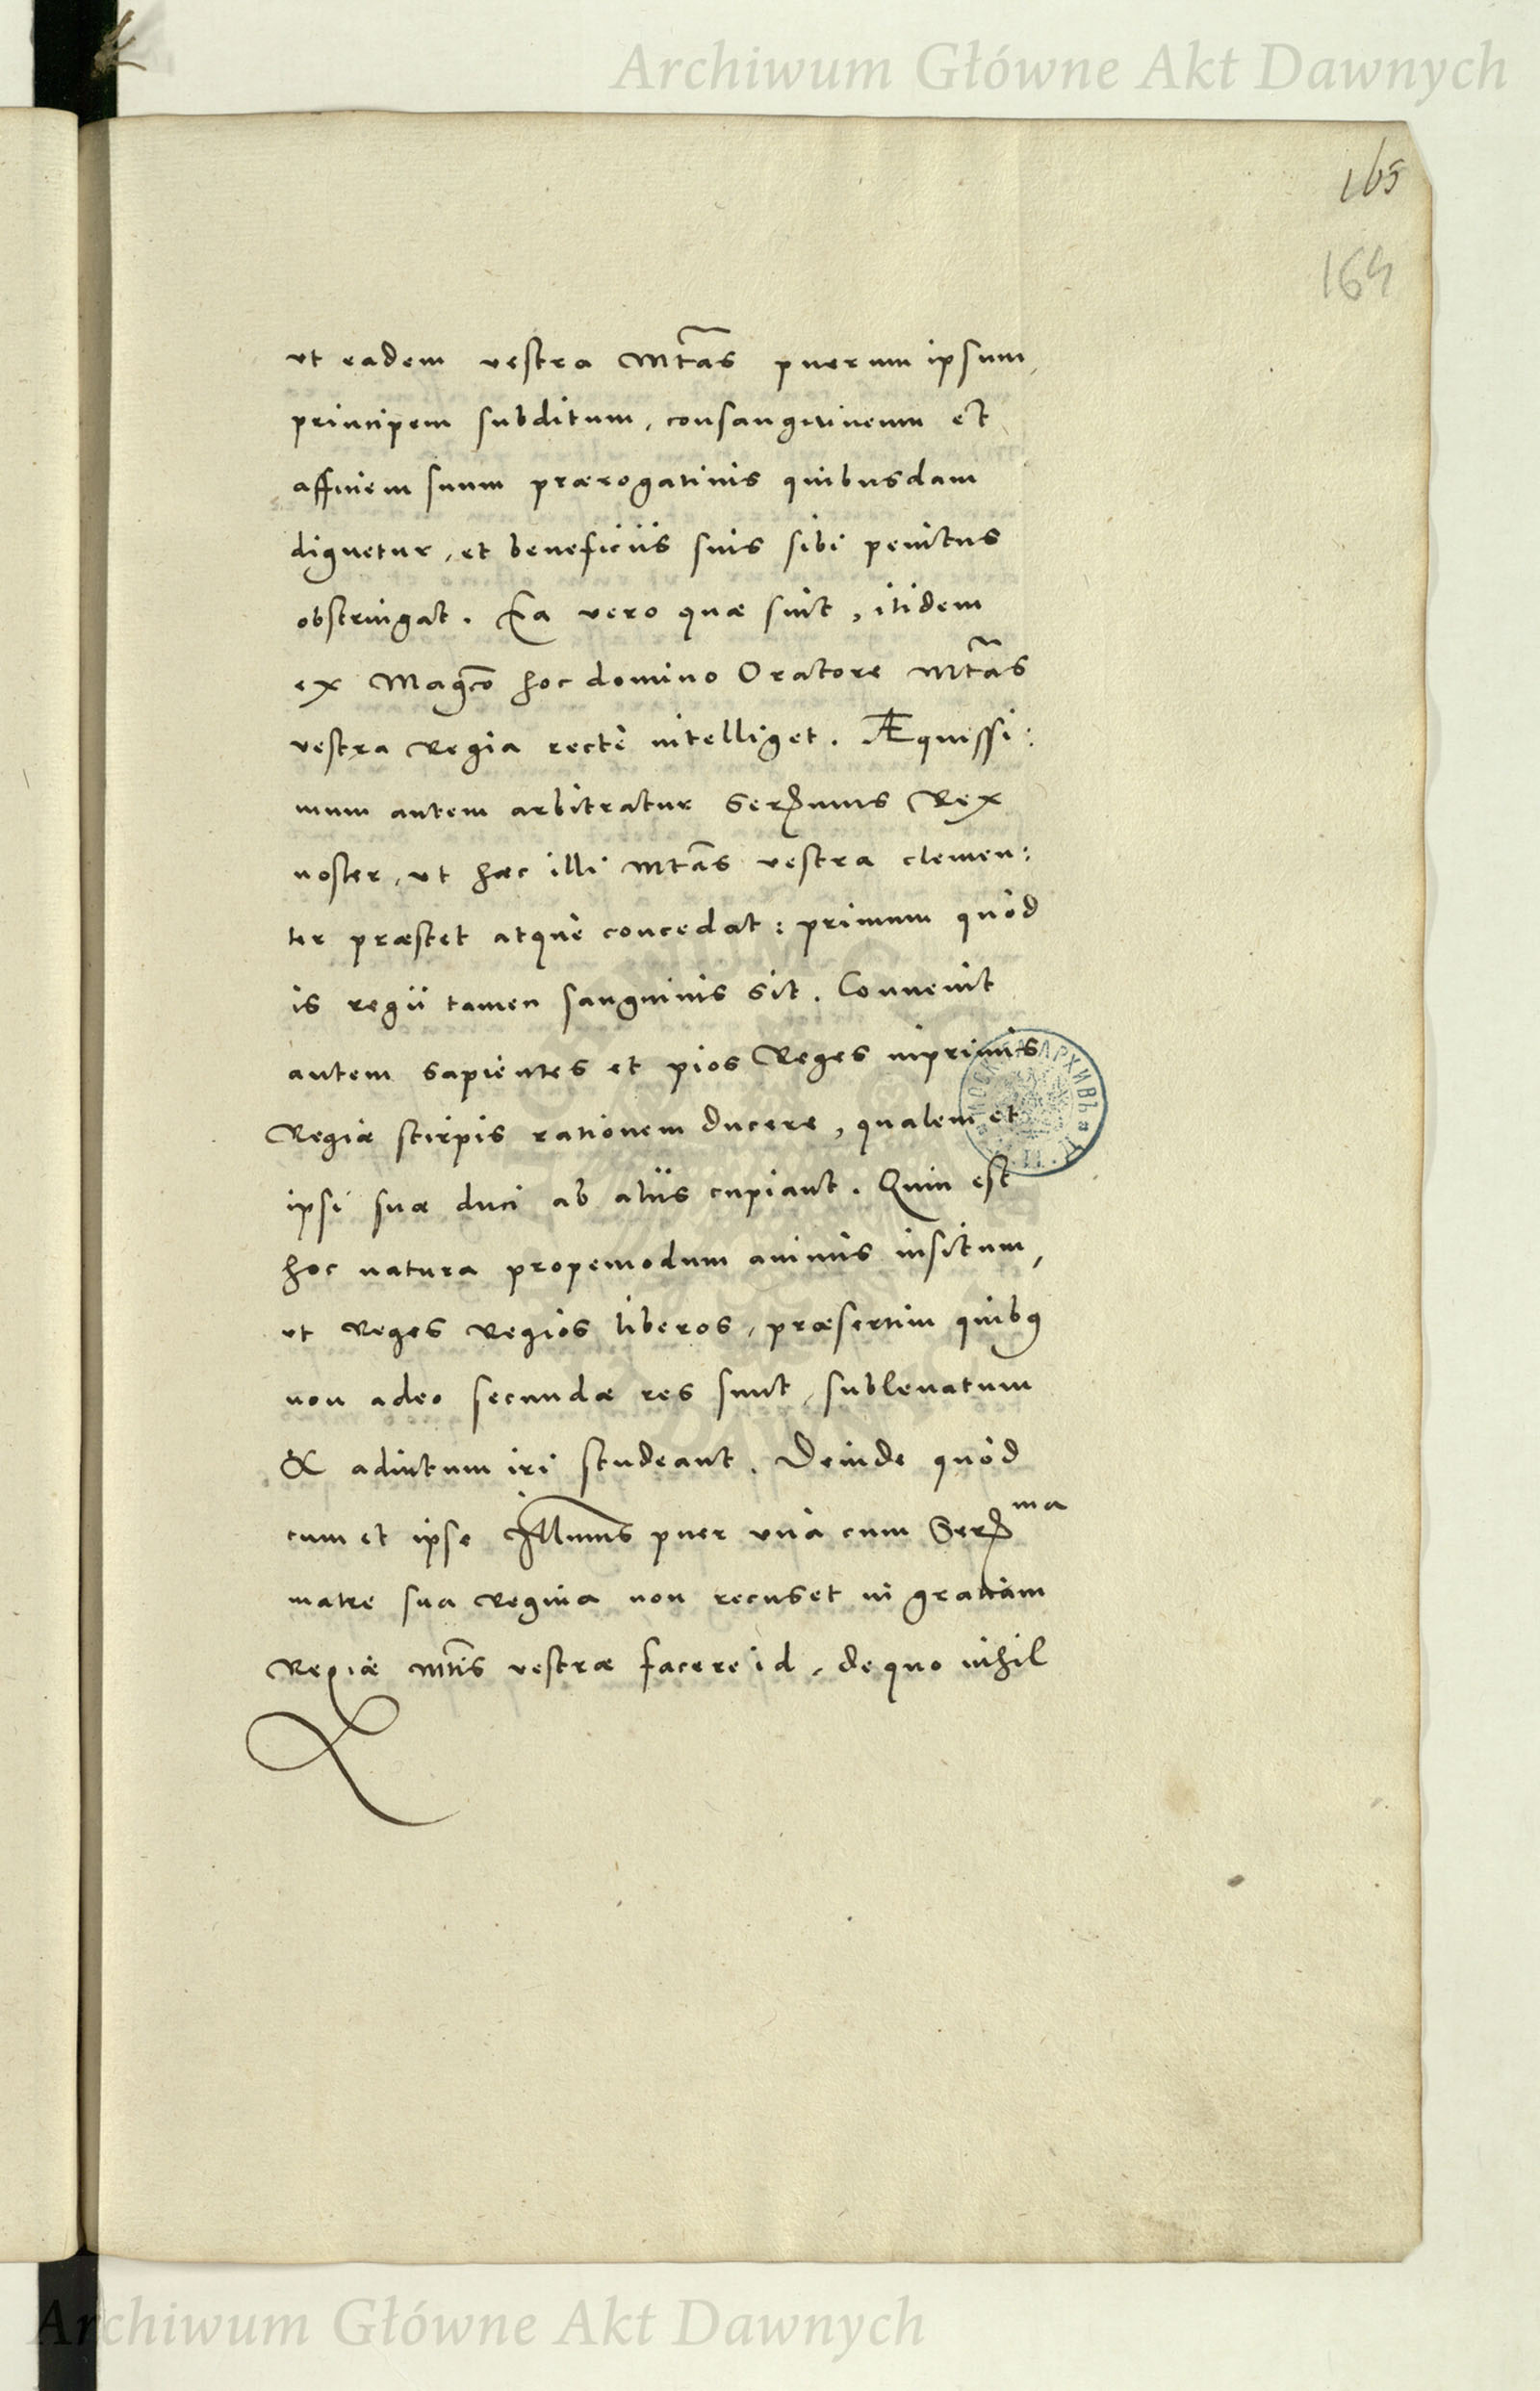 Archiwum Główne Akt Dawnych
165
164
ut eadem vestra Mtas puerum ipsum,
principem subditum, consanguineum et
affinem suum prærogativis quibusdam
dignetur, et beneficiis suis sibi penitus
obstringat. Ea vero quæ sint, itidem
ex Magco hoc domino Oratore Mtas
vestra Regia rectè intelliget. Æquissi:
mum autem arbitratur Serenimus Rex
noster, ut hæc illi Mtas vestra clemen:
ter præstet atque concedat: primum quòd
is regii tamen sanguinis sit. Convenit
autem sapientes et pios Reges inprimis
Regiæ stirpis rationem ducere, qualem et
ipsi suæ duci ab aliis cupiant. Quin est
hoc natura propemodum animis insitum,
ut Reges Regios liberos, præsertim quibus
non adeo secundæ res sunt, sublevatum
& adiutum iri studeant. Deinde quòd
cum et ipse Illmus puer unà cum Serma
matre sua Regina non recuset in gratiam
Regiæ Mtis vestræ facere id, de quo nihil
Archiwum Główne Akt Dawnych